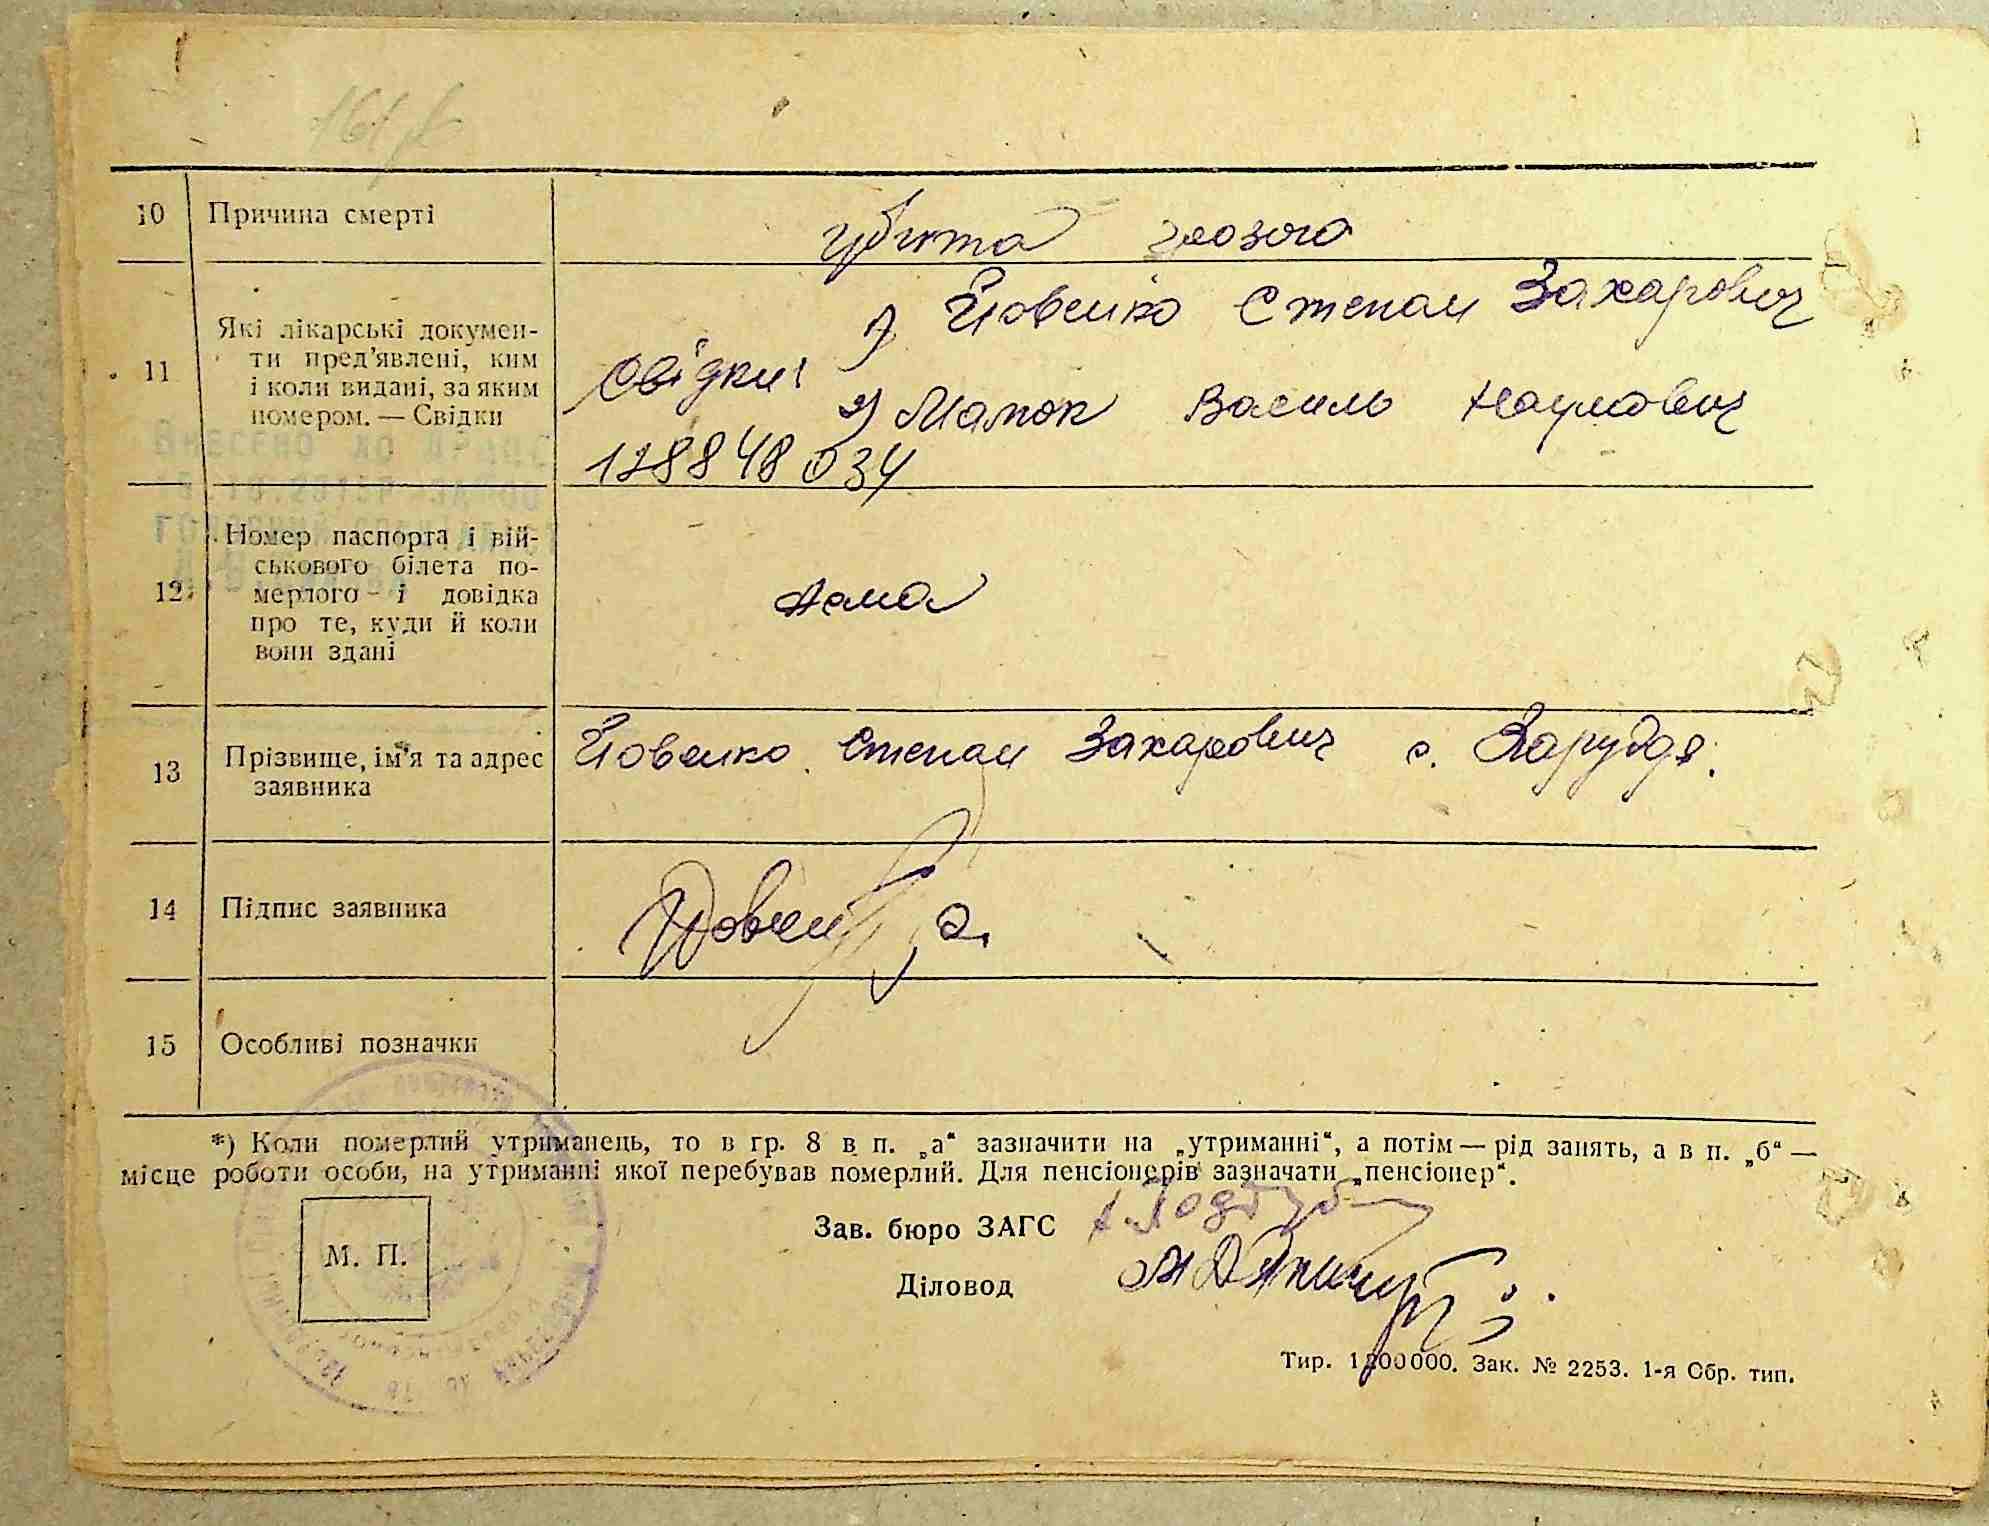 10 Причина смерті убита грозою
11 Які лікарські докумен-
ти пред'явлені, ким
і коли видані, за яким
номером. — Свідки
Свідки: 1) Йовенко Степан Захарович
2) Мамон Василь Наумович
128848 034
12 Номер паспорта і вій-
ськового білета по-
мерлого і довідка
про те, куди й коли
вони здані
Нема
13 Прізвище, ім'я та адрес
заявника
Йовенко Степан Захарович с. Заруддя.
14 Підпис заявника
15 Особливі позначки
*) Коли померлий утриманець, то в гр. 8 в п. „а“ зазначити на „утриманні“, а потім — рід занять, а в п. „б“ —
місце роботи особи, на утриманні якої перебував померлий. Для пенсіонерів зазначати „пенсіонер“.
М. П.
Зав. бюро ЗАГС
Діловод
Тир. 1200000. Зак. № 2253. 1-я Обр. тип.